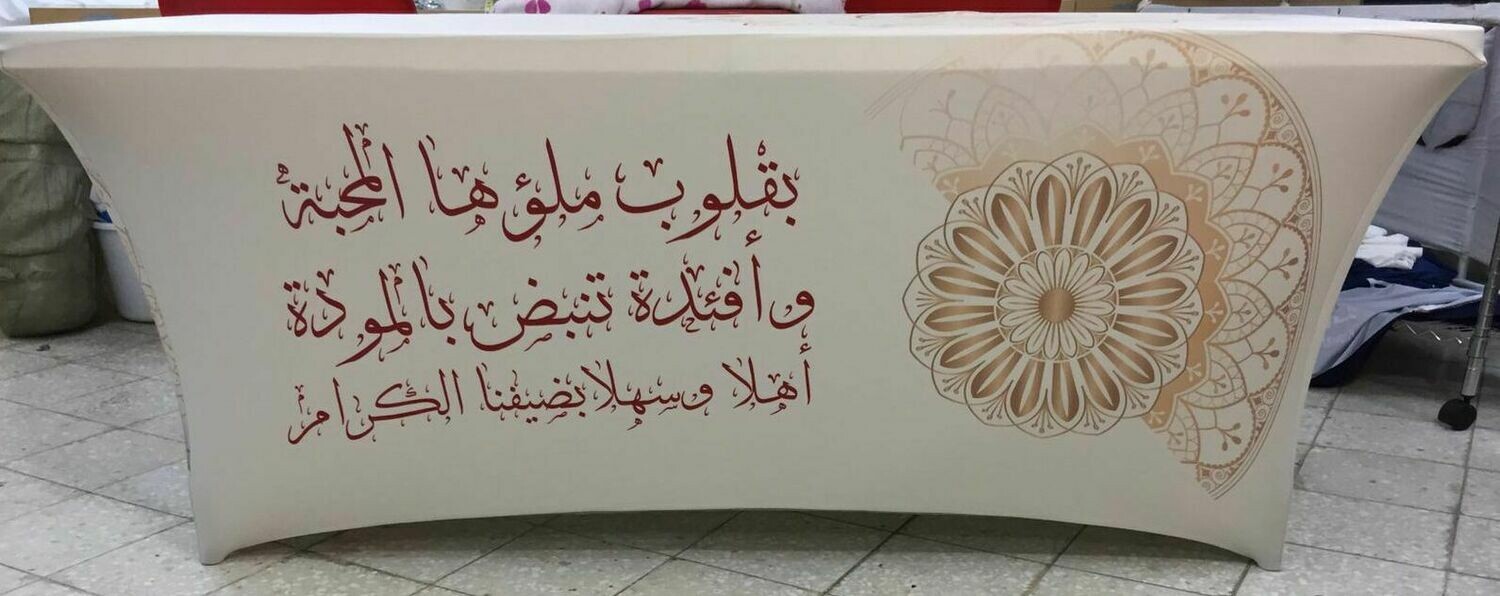 بقلوب ملؤها المحبة
وأفئدة تنبض بالمودة
أهلا وسهلا بضيفنا الكرام